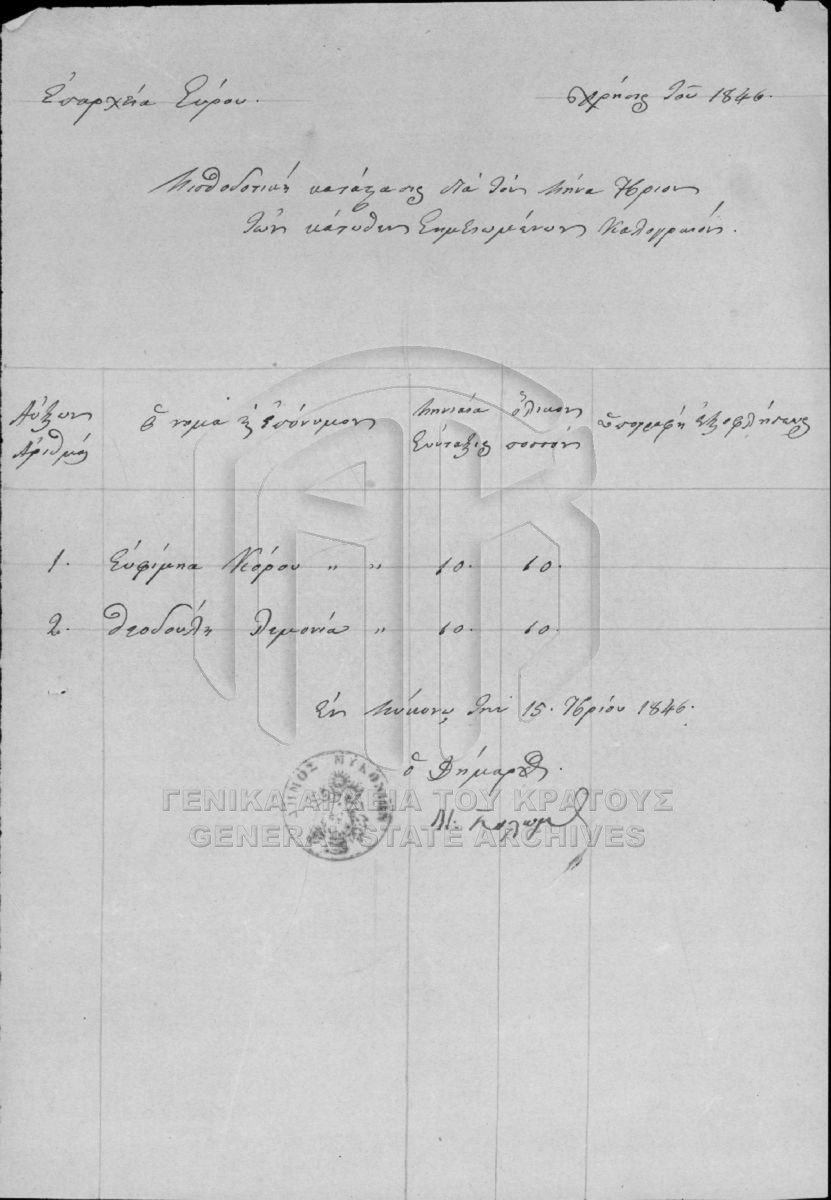 Ἐπαρχεία Σύρου.
Χρῆσις τοῦ 1846.
Μισθοδοτικὴ κατάστασις διὰ τὸν μῆνα 7βριον
τῶν κάτωθεν σημειωμένων Καλογραιῶν.
Αὔξων Ἀριθμὸς
Ὄνομα καὶ Ἐπώνυμον
Μηνιαία Σύνταξις
ὁλικὸν ποσσὸν
ὑπογραφὴ ἐξοφλήσεως
1. Εὐφίμηα Κόρου " " 10. 10.
2. Θεοδούλη Λεμονία " 10. 10.
Ἐν Μυκόνῳ τὴν 15. 7βρίου 1846.
ὁ Δήμαρχος
Μ.
ΔΗΜΟΣ ΜΥΚΟΝΙΩΝ
ΓΕΝΙΚΑ ΑΡΧΕΙΑ ΤΟΥ ΚΡΑΤΟΥΣ
GENERAL STATE ARCHIVES